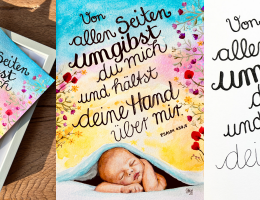 Seiten
st
ch
Von
allen Seiten
umgibst
du mich
und hältst
deine Hand
über mir.
PSALM 139,5
Von
allen
um
d
und
dei